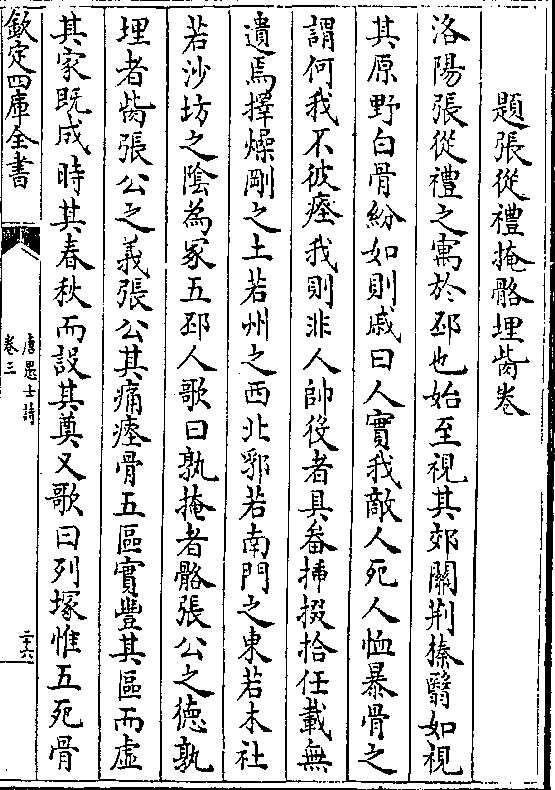 題張從禮掩骼埋胔卷
洛陽張從禮之寓於邳也始至視其郊關荆榛翳如視
其原野白骨紛如則戚曰人實我敵人死人恤暴骨之
謂何我不彼瘞我則非人帥役者具畚挿掇拾任載無
遺焉擇燥剛之土若州之西北郛若南門之東若木社
若沙坊之陰為冢五邳人歌曰孰掩者骼張公之德孰
埋者胔張公之義張公其痛瘞骨五區實豐其區而虚
其家既成時其春秋而設其奠又歌曰列塚惟五死骨
欽定四庫全書
唐愚士詩
卷三
三六